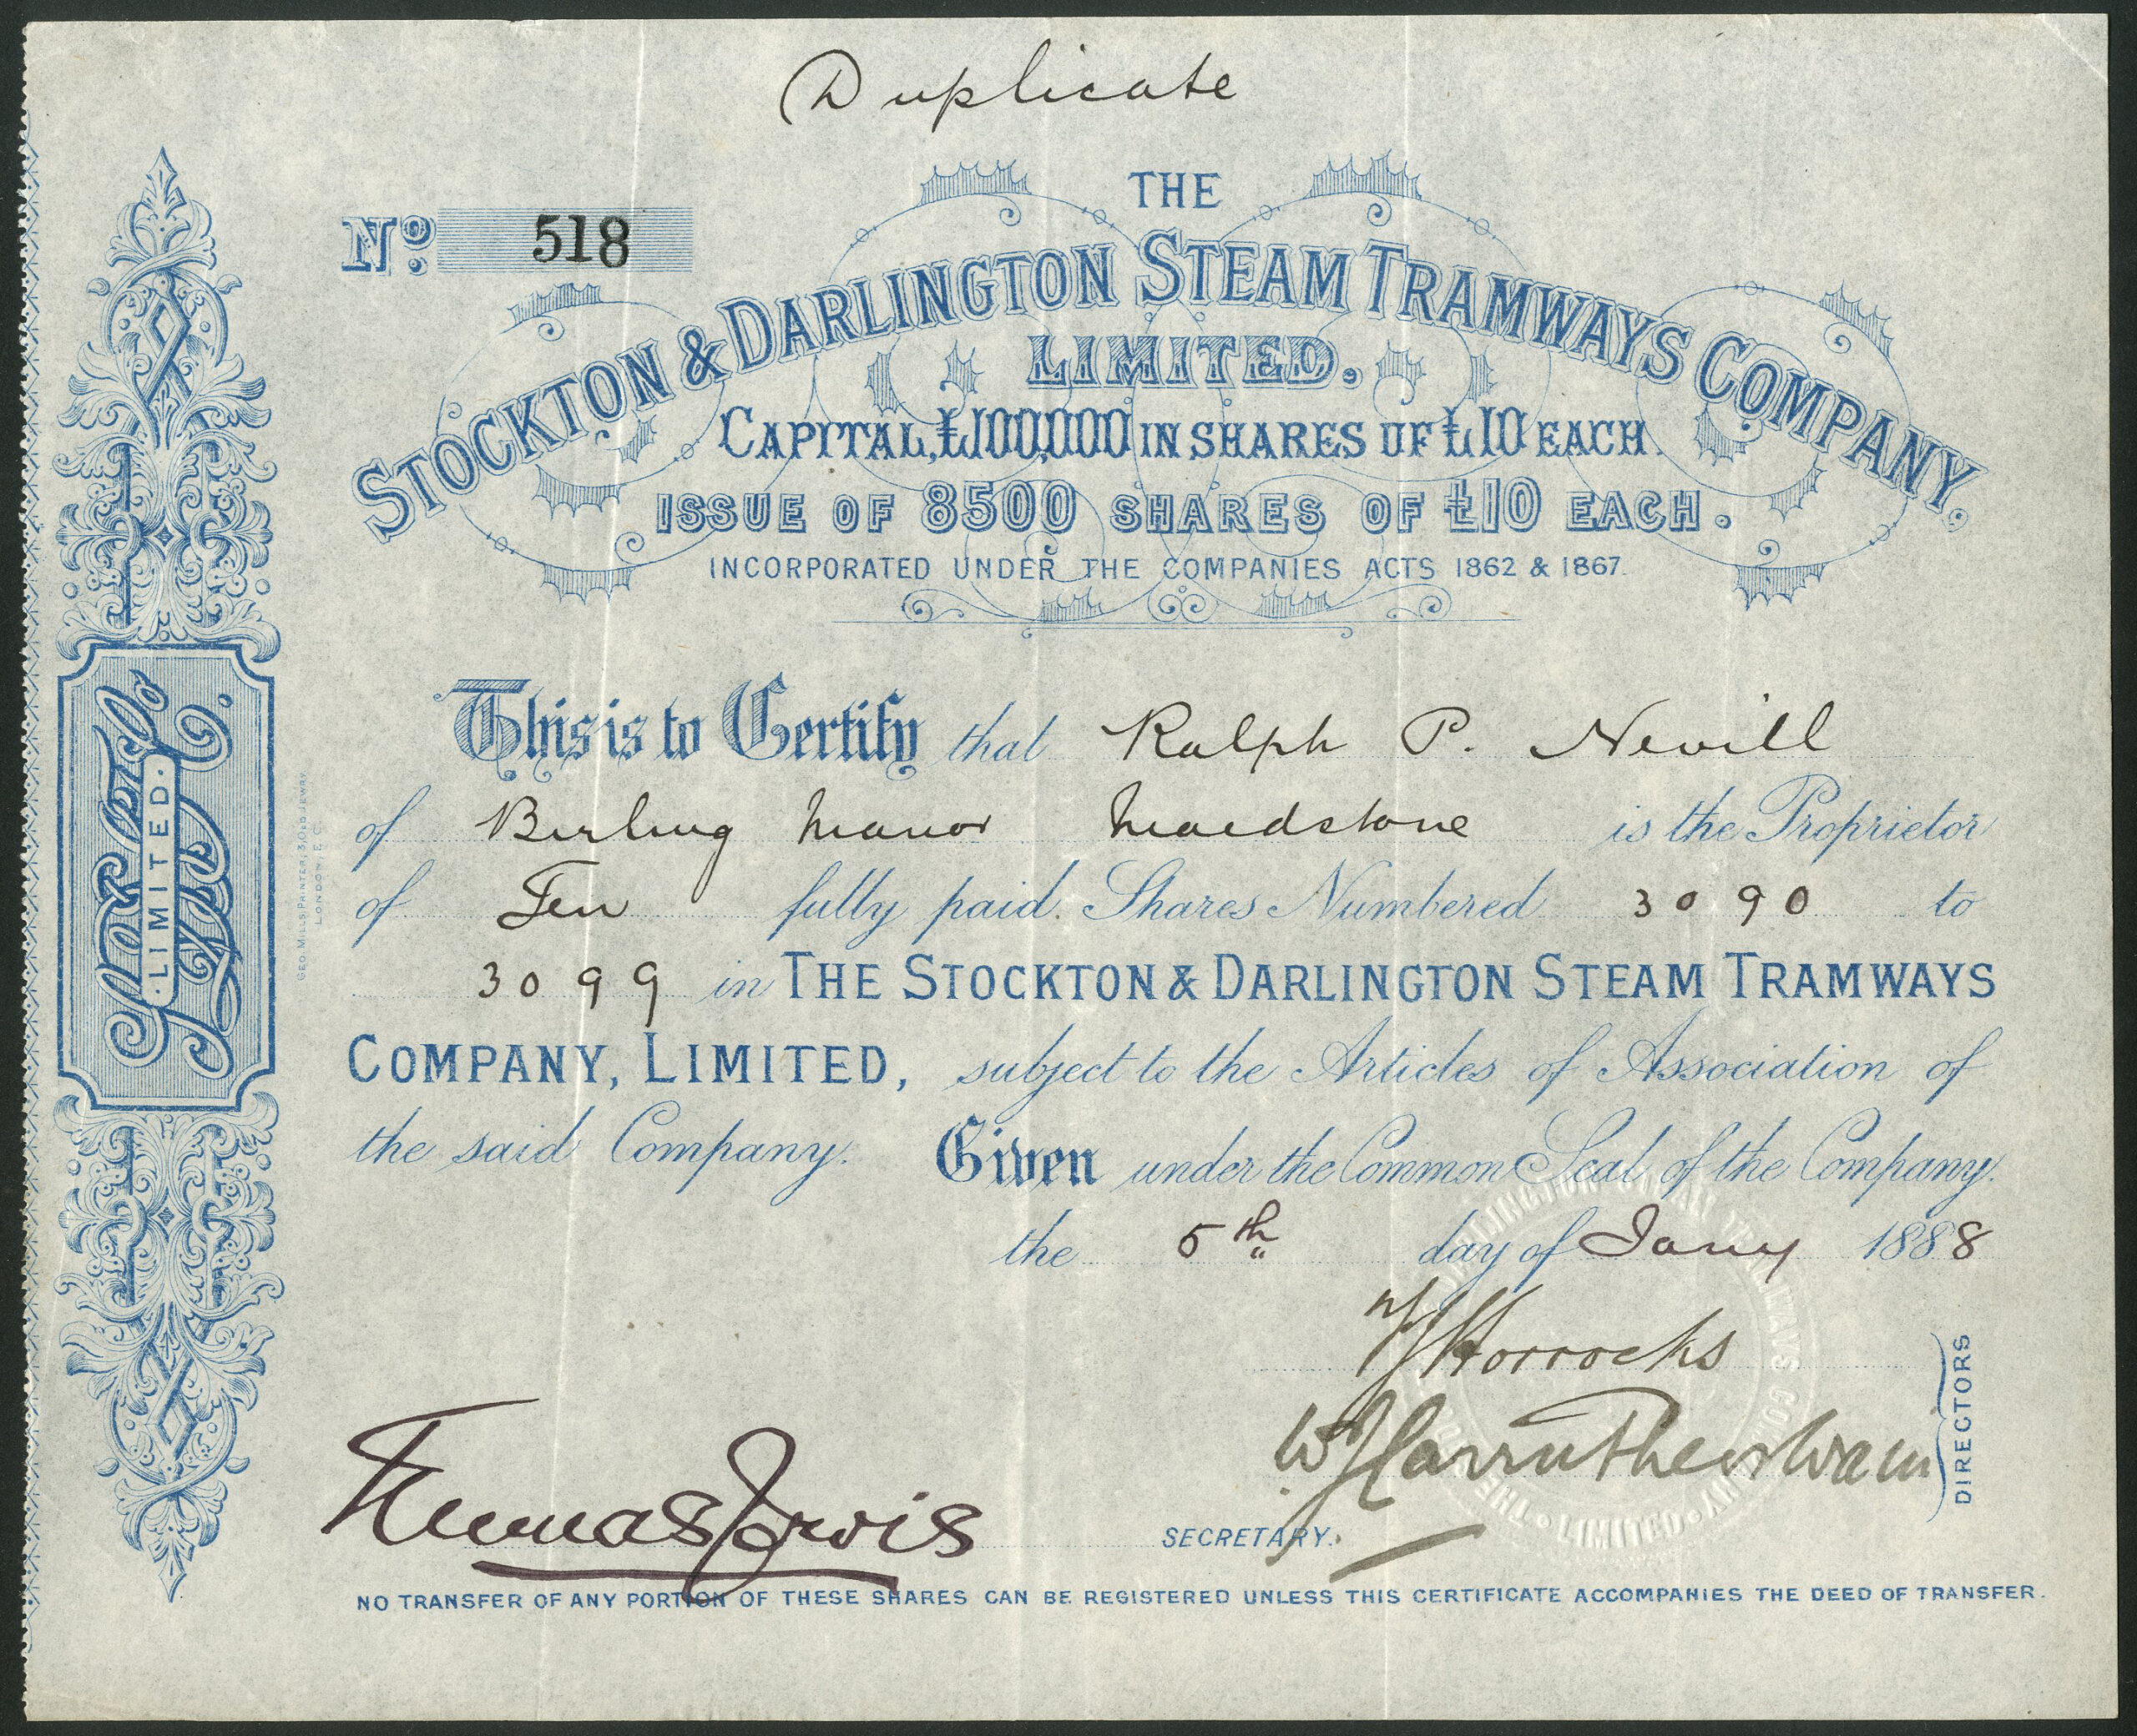 Duplicate
No. 518
THE
STOCKTON & DARLINGTON STEAM TRAMWAYS COMPANY,
LIMITED.
CAPITAL, £100,000 IN SHARES OF £10 EACH.
ISSUE OF 8500 SHARES OF £10 EACH.
INCORPORATED UNDER THE COMPANIES ACTS 1862 & 1867.
This is to Certify that Ralph P. Nevill
of Birling Manor Maidstone is the Proprietor
of Ten fully paid Shares Numbered 3090 to
3099 in THE STOCKTON & DARLINGTON STEAM TRAMWAYS
COMPANY, LIMITED, subject to the Articles of Association of
the said Company. Given under the Common Seal of the Company.
the 5th day of Jany 1888
Horrocks
W J Carruthers Wain
DIRECTORS
Thomas Jervis
SECRETARY.
NO TRANSFER OF ANY PORTION OF THESE SHARES CAN BE REGISTERED UNLESS THIS CERTIFICATE ACCOMPANIES THE DEED OF TRANSFER.
LIMITED.
GEO. MILLS, PRINTER,
LONDON, E.C.
TRAMWAYS COMPANY LIMITED